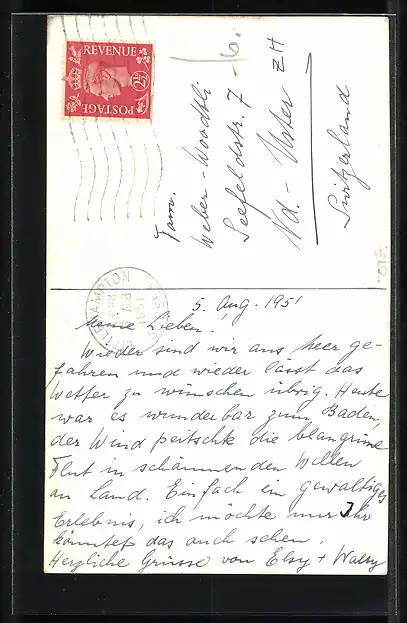 REVENUE
2½D
POSTAGE
Fam.
Weber-Woodtli
Seefeldstr. 7
Nd.-Uster ZH
Switzerland
LITTLEHAMPTON SUSSEX
AUG
1951
5. Aug. 1951
Meine Lieben.
Wieder sind wir ans Meer ge-
fahren und wieder lässt das
Wetter zu wünschen übrig. Heute
war es wunderbar zum Baden,
der Wind peitschte die blaugrüne
Flut in schäumenden Wellen
an Land. Einfach ein gewaltiges
Erlebnis, ich möchte nur Ihr
könntet das auch sehen.
Herzliche Grüsse von Elsy + Walsy